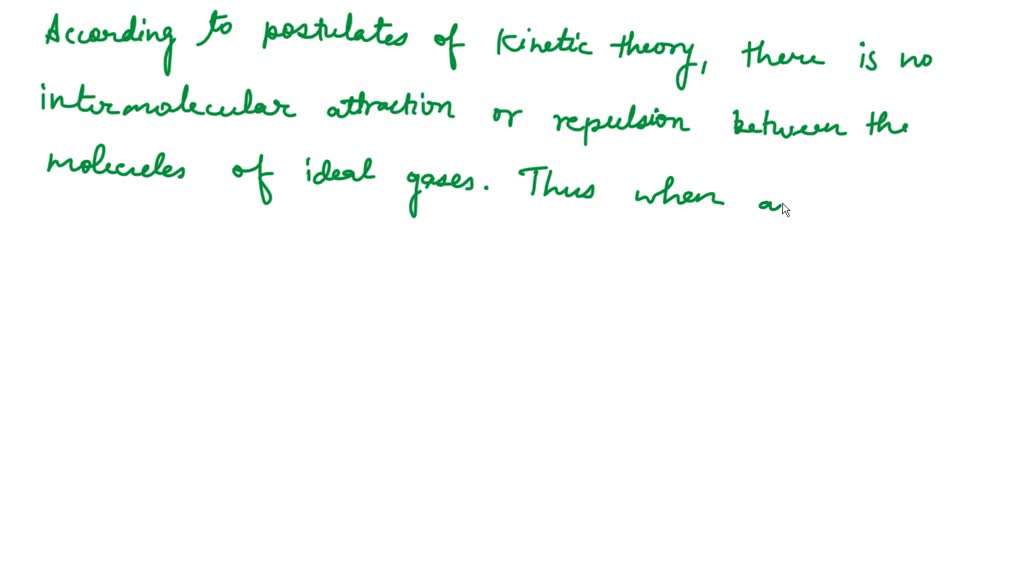 According to postulates of Kinetic theory, there is no
intermolecular attraction or repulsion between the
molecules of ideal gases. Thus when a